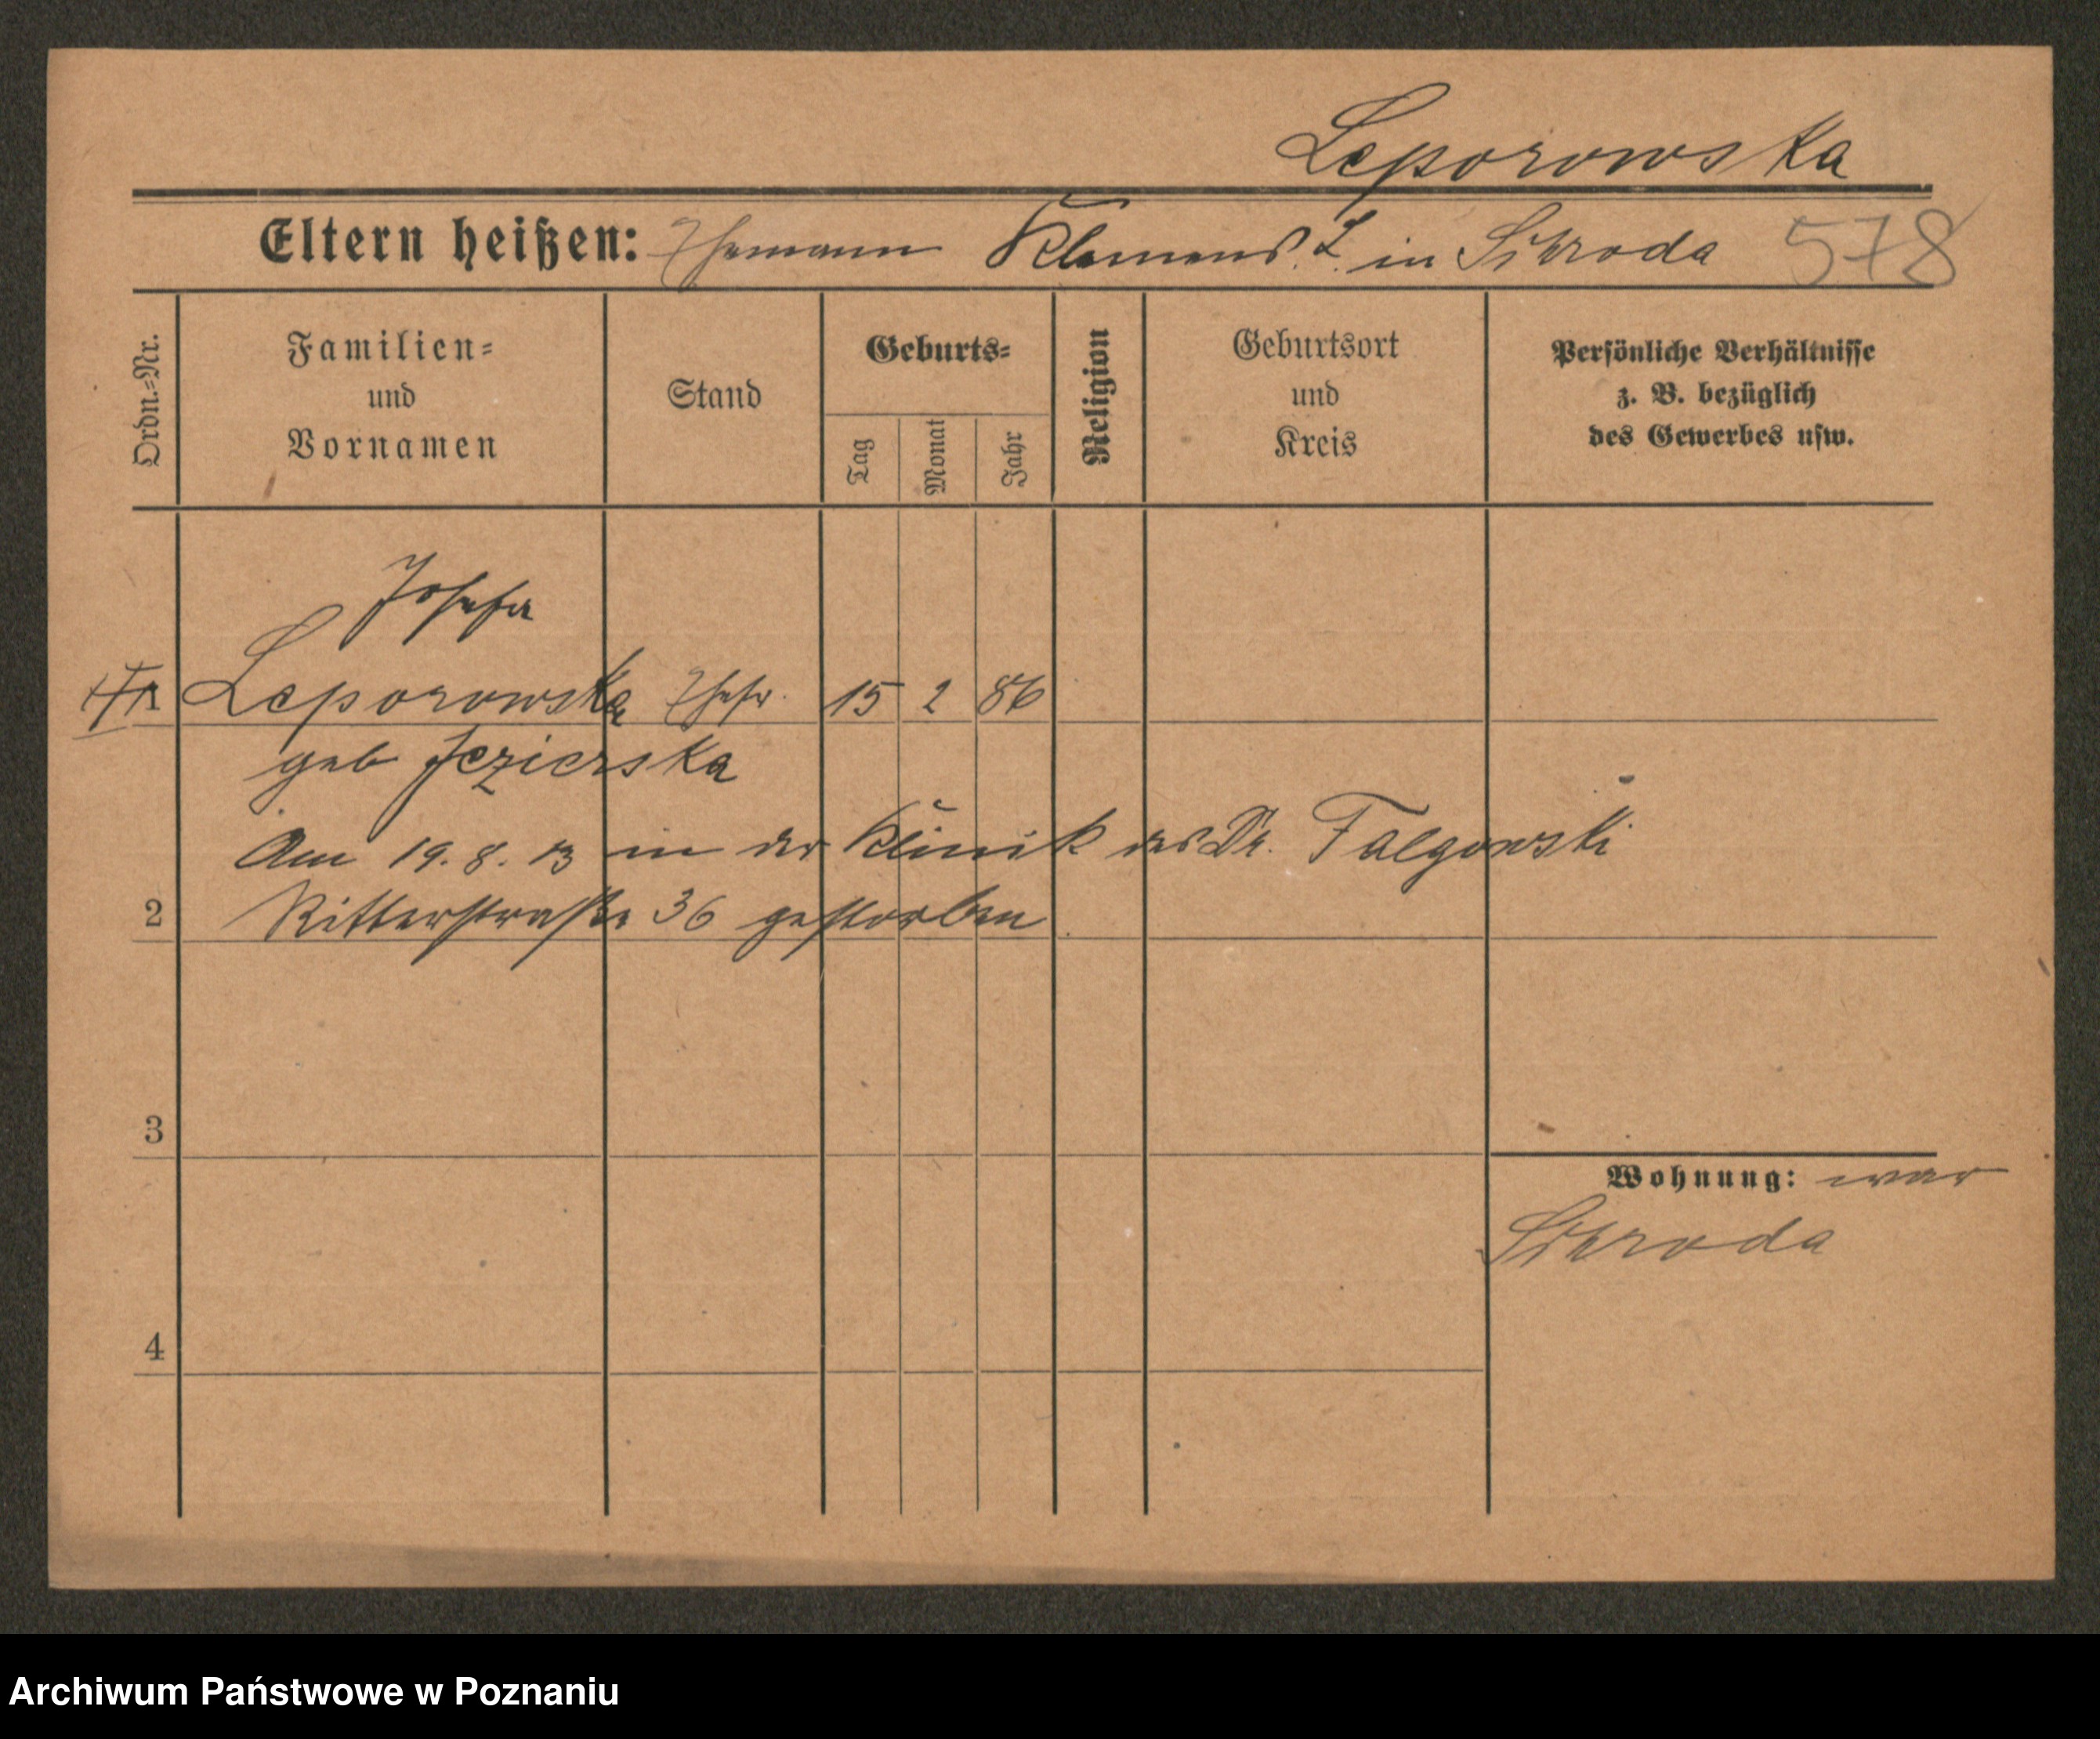 Leporowska
Eltern heißen: Ehemann Klemens L. in Schroda 578
Ordn.-Nr.
Familien-
und
Vornamen
Stand
Geburts-
Tag
Monat
Jahr
Religion
Geburtsort
und
Kreis
Persönliche Verhältnisse
z. B. bezüglich
des Gewerbes usw.
Josefa
1 Leporowska Ehefr. 15 2 86
geb Jezierska
Am 19. 8. 13 in der Klinik des Dr. Falgowski
2 Ritterstraße 36 gestorben
3
Wohnung: war
Schroda
4
Archiwum Państwowe w Poznaniu